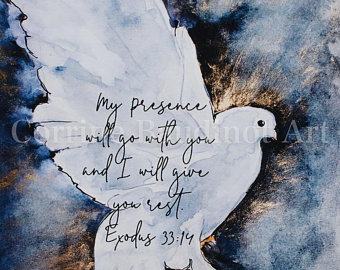 My presence
will go with you
and I will give
you rest.
Exodus 33:14